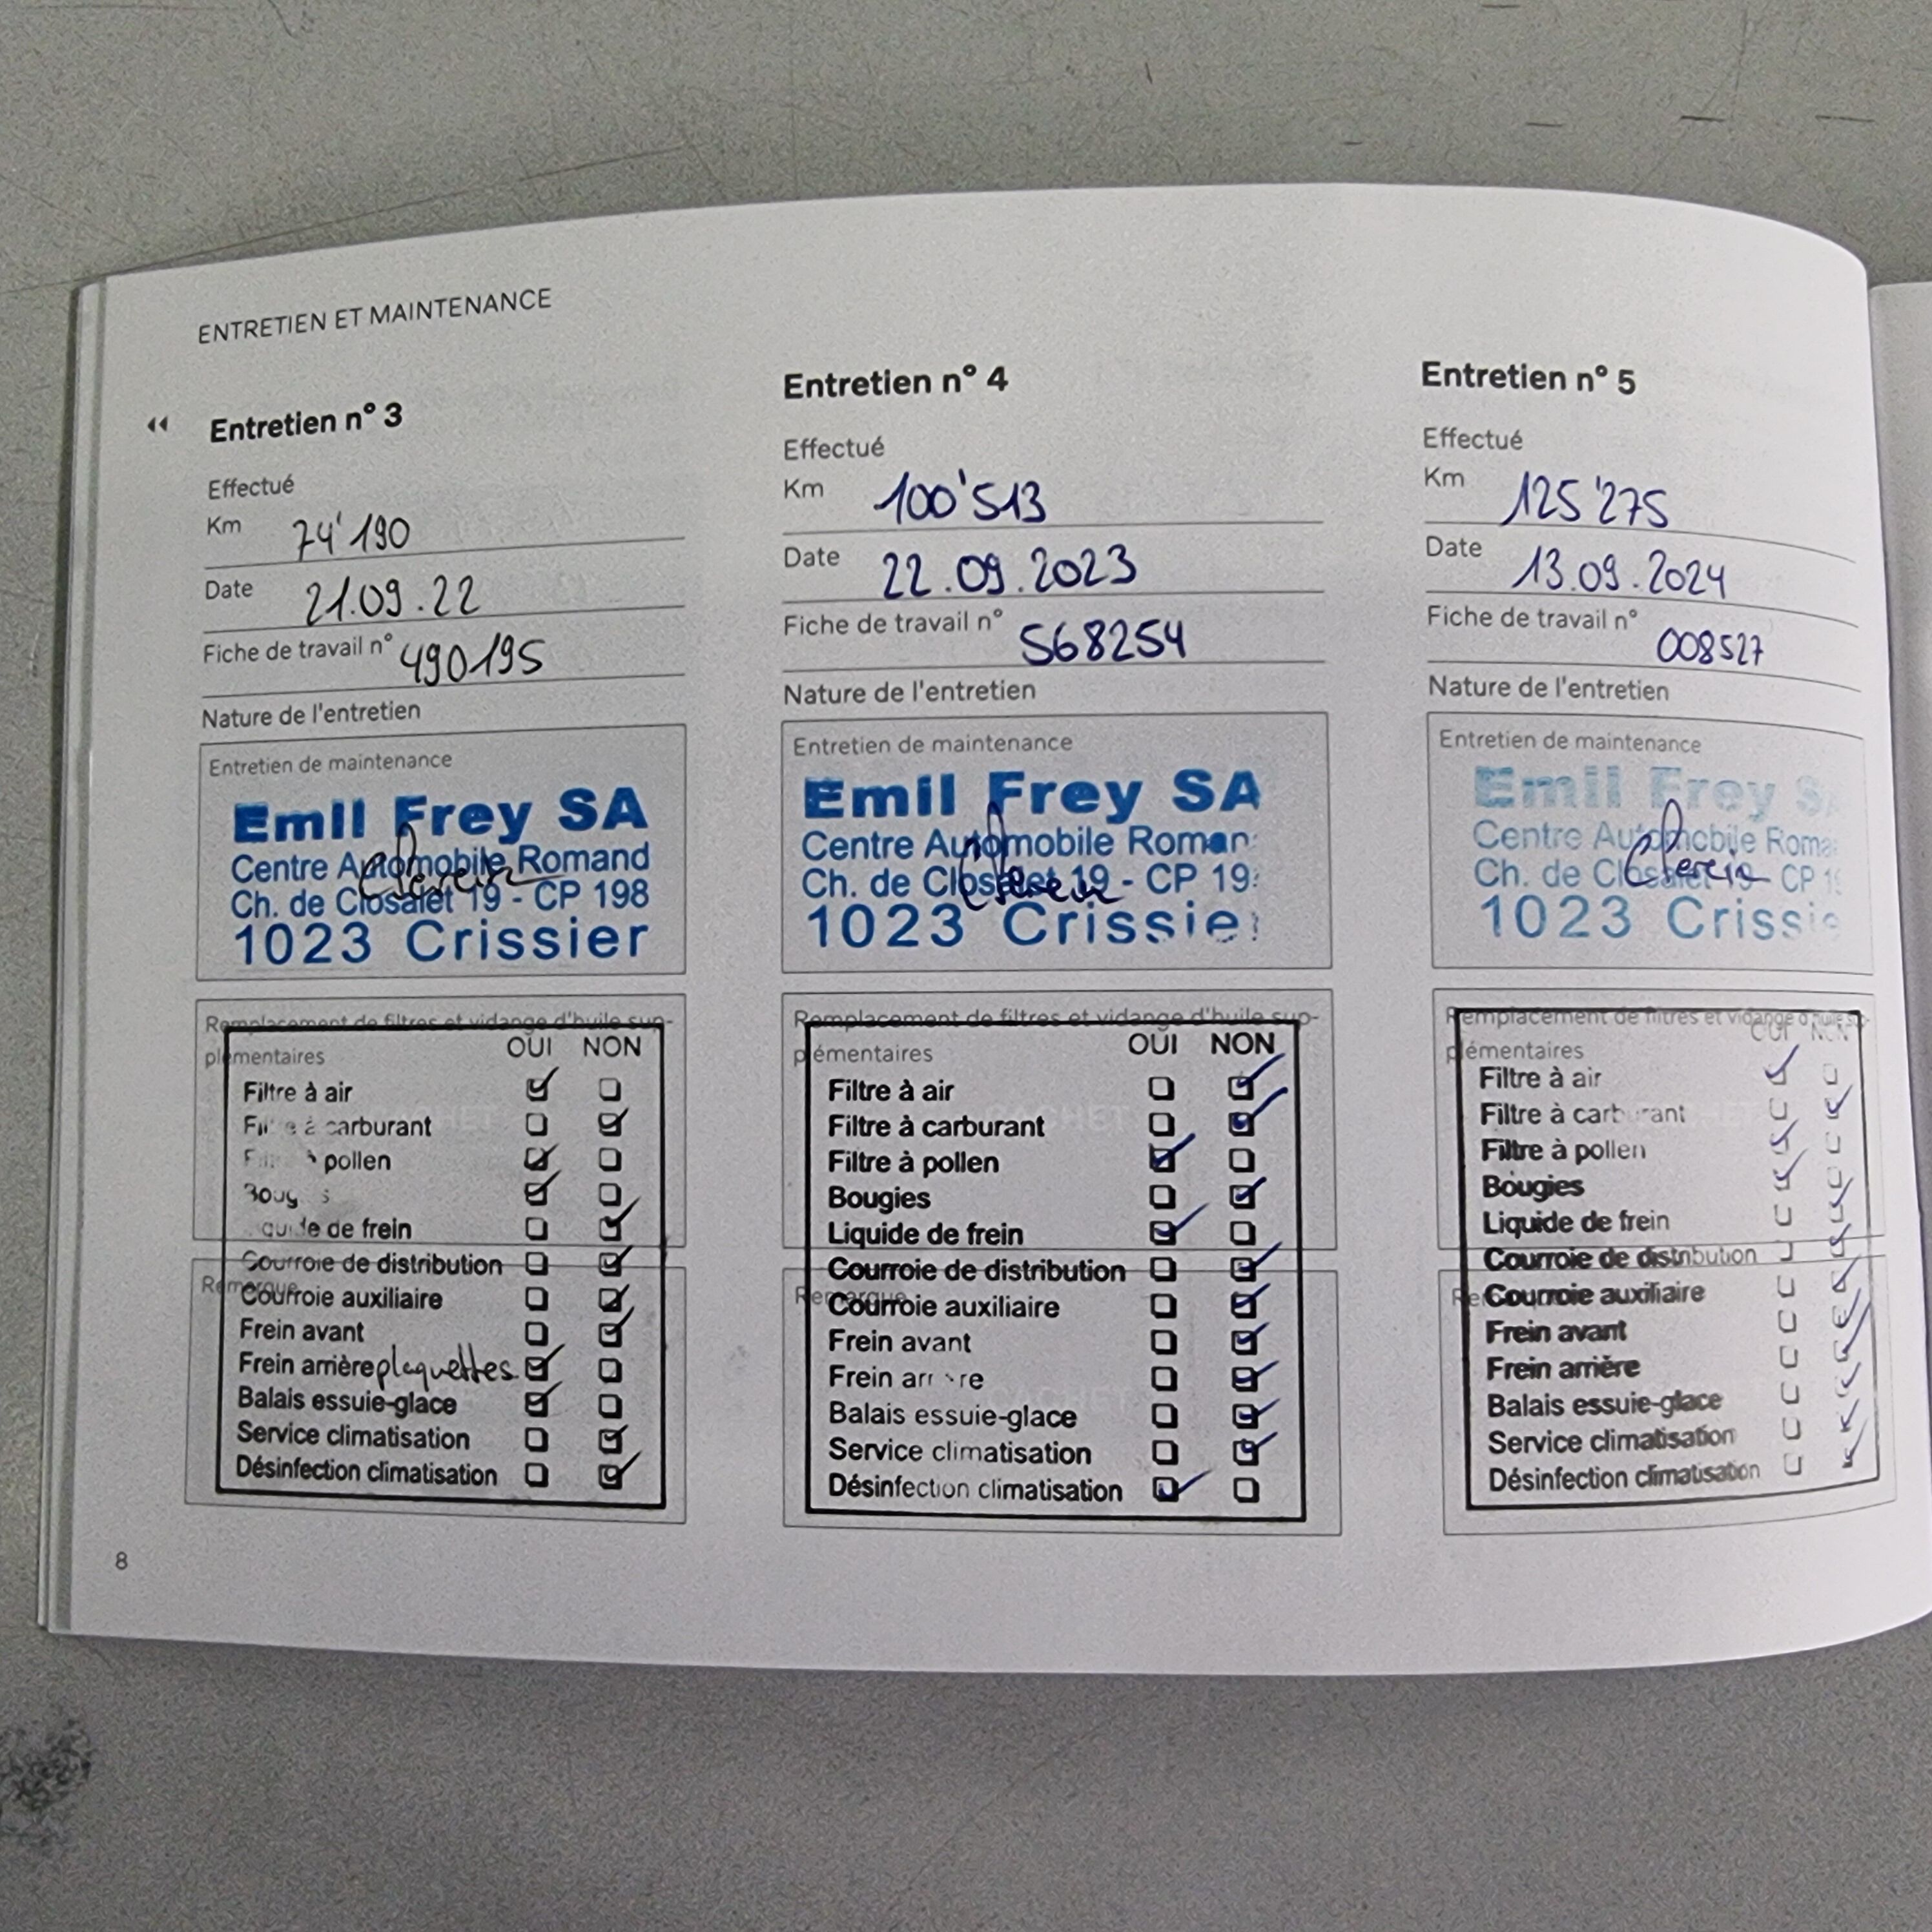 ENTRETIEN ET MAINTENANCE
Entretien n° 3
Effectué
Km 74'190
Date 21.09.22
Fiche de travail n° 490195
Nature de l'entretien
Entretien de maintenance
Emil Frey SA
Centre Automobile Romand
Ch. de Closalet 19 - CP 198
1023 Crissier
Remplacement de filtres et vidange d'huile sup-
plémentaires
OUI NON
Filtre à air
Filtre à carburant
Filtre à pollen
Bougies
Liquide de frein
Courroie de distribution
Remarque
Courroie auxiliaire
Frein avant
Frein arrière plaquettes
Balais essuie-glace
Service climatisation
Désinfection climatisation
Entretien n° 4
Effectué
Km 100'513
Date 22.09.2023
Fiche de travail n° 568254
Nature de l'entretien
Entretien de maintenance
Emil Frey SA
Centre Automobile Roman
Ch. de Closalet 19 - CP 19
1023 Crissie
Remplacement de filtres et vidange d'huile sup-
plémentaires
OUI NON
Filtre à air
Filtre à carburant
Filtre à pollen
Bougies
Liquide de frein
Courroie de distribution
Remarque
Courroie auxiliaire
Frein avant
Frein arrière
Balais essuie-glace
Service climatisation
Désinfection climatisation
Entretien n° 5
Effectué
Km 125'275
Date 13.09.2024
Fiche de travail n° 008527
Nature de l'entretien
Entretien de maintenance
Emil Frey S
Centre Automobile Roma
Ch. de Closalet 19 - CP 1
1023 Crissie
Remplacement de filtres et vidange d'huile sup-
plémentaires
OUI NON
Filtre à air
Filtre à carburant
Filtre à pollen
Bougies
Liquide de frein
Courroie de distribution
Courroie auxiliaire
Frein avant
Frein arrière
Balais essuie-glace
Service climatisation
Désinfection climatisation
8